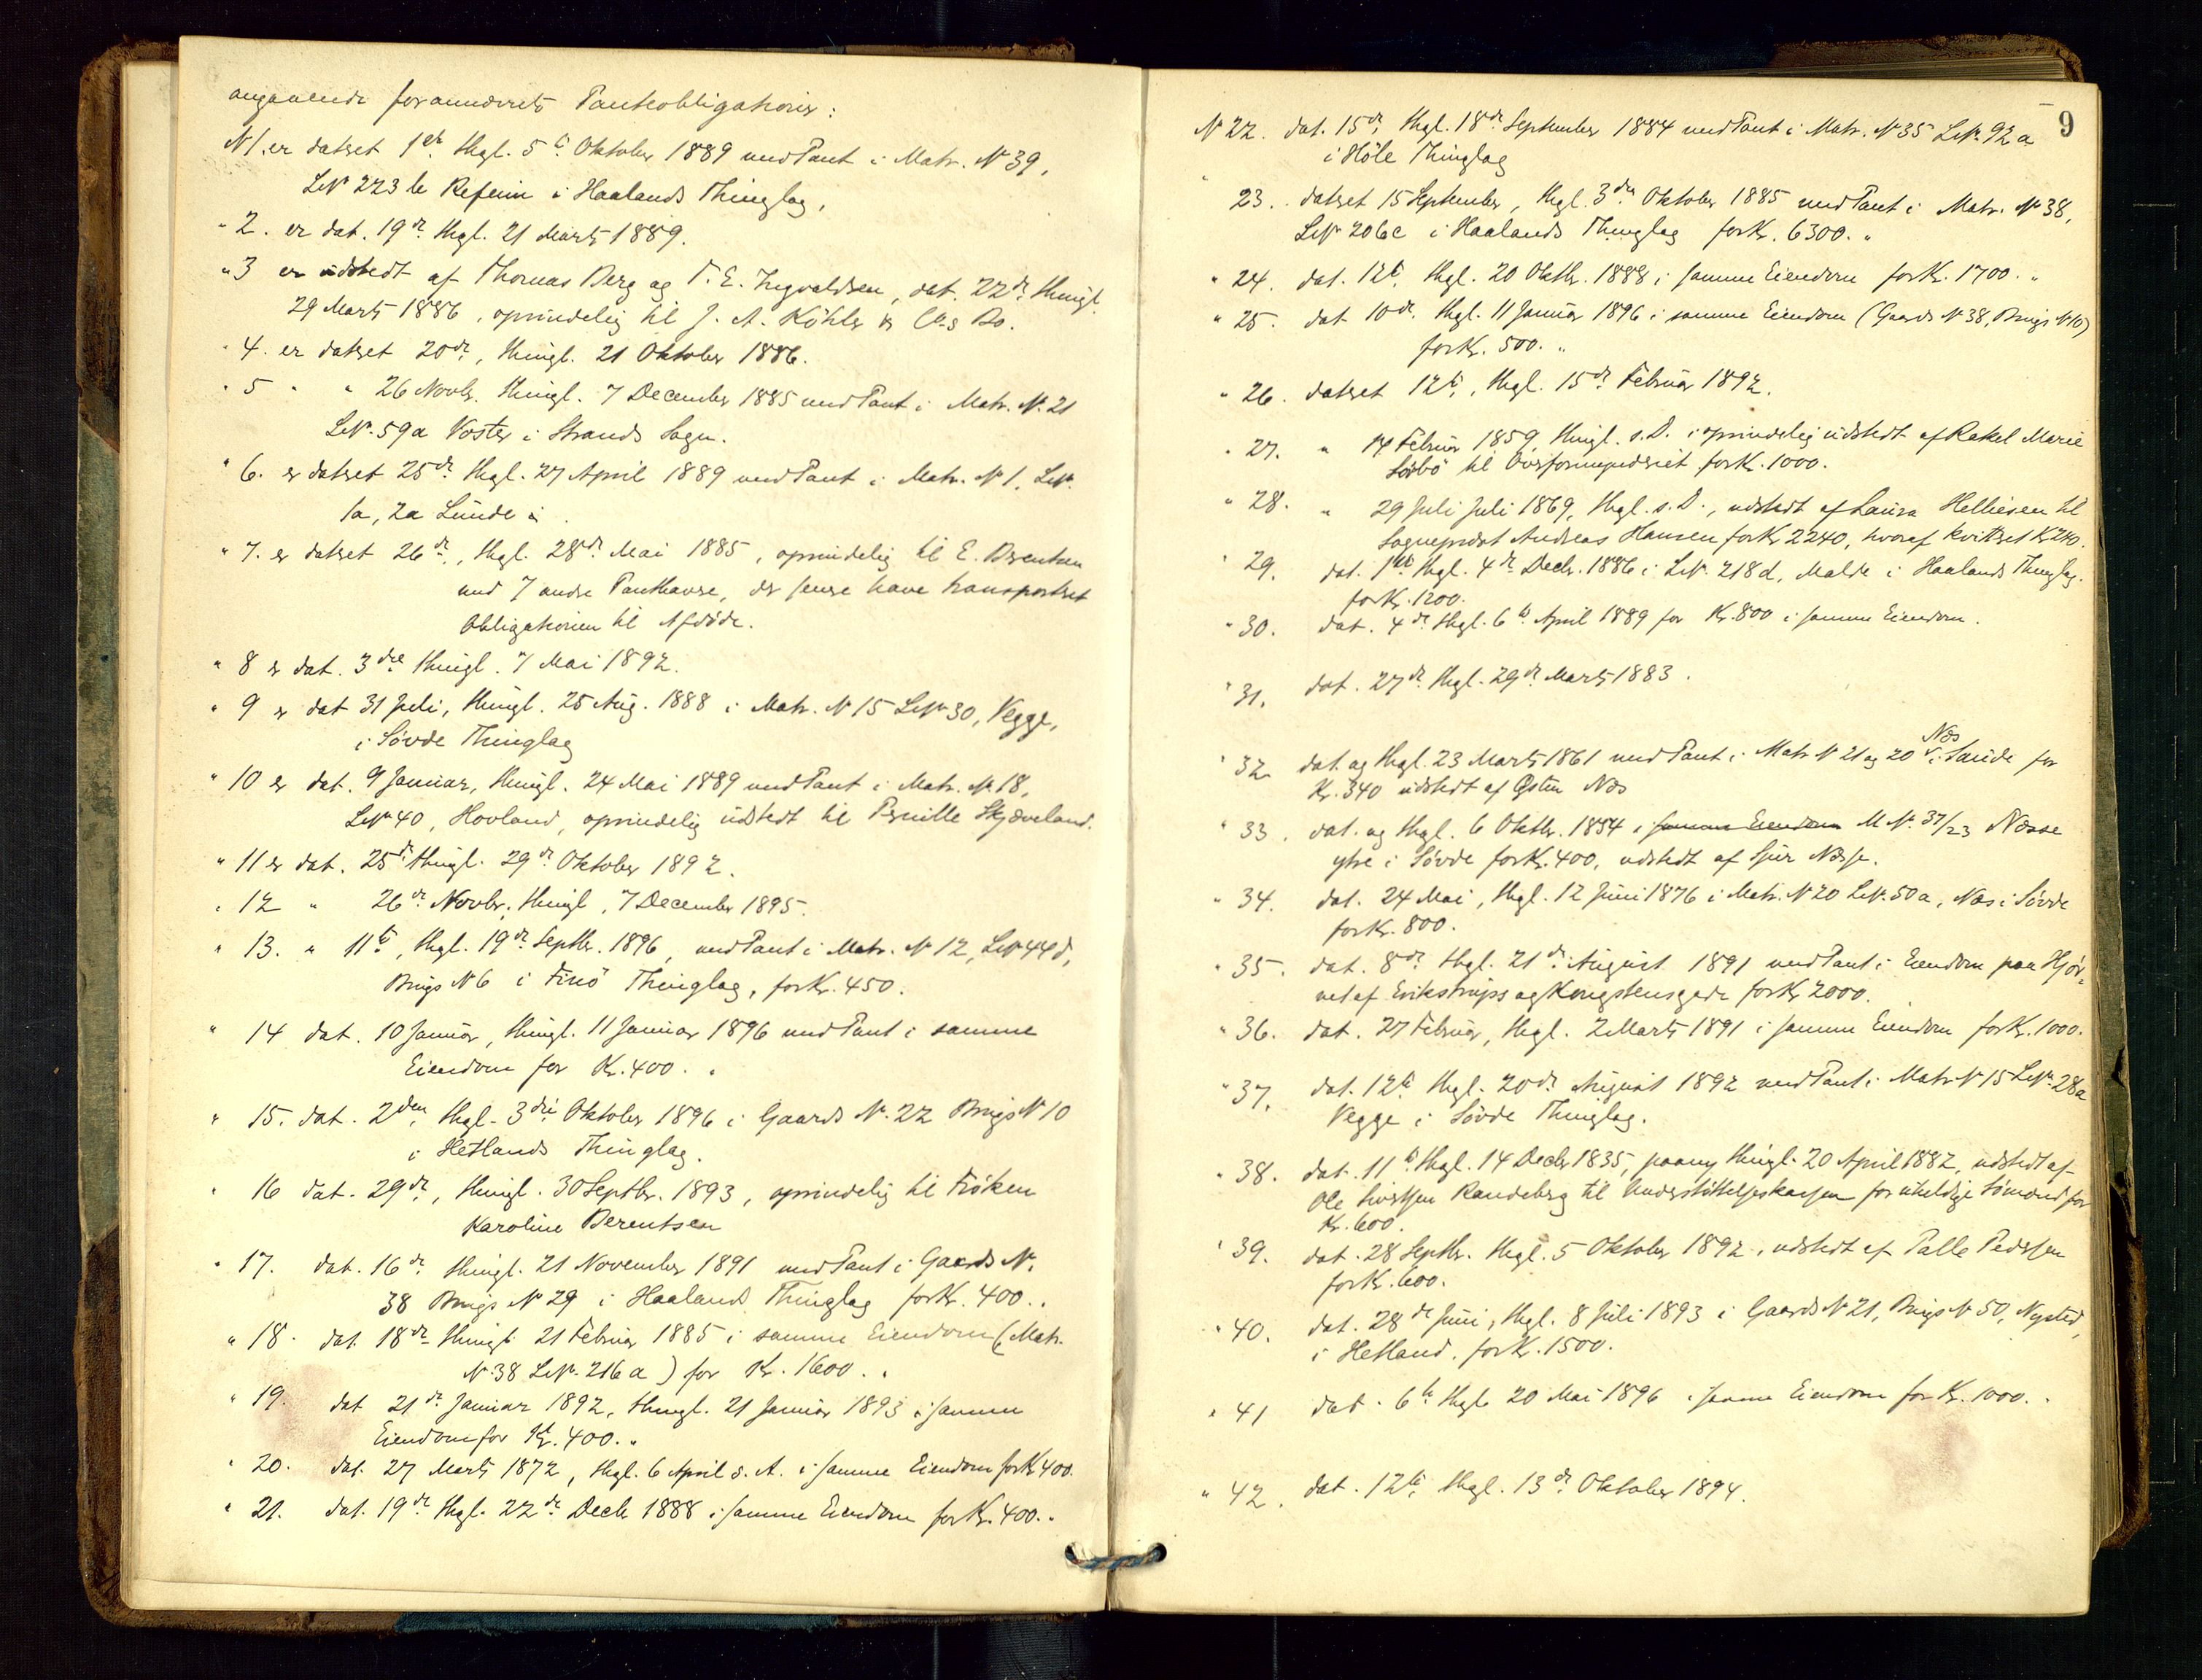 angaaende forannævnte Panteobligationer:
N 1. er dateret 1ste thgl. 5te Oktober 1889 med Pant i Matr. N 39,
LN 223 b Refheim i Haalands Thinglag,
" 2. er dat. 19de thgl. 21 Marts 1889.
" 3 er udstedt af Thomas Berg og T. E. Ingvaldsen, dat. 22de thingl.
29 Marts 1886, oprindelig til J. A. Köhler & Co.s Bo.
" 4. er dateret 20de, thingl. 21 Oktober 1886.
" 5 " " 26 Novbr. thingl. 7 December 1885 med Pant i Matr. N. 21
LN. 59a Voster i Strands Sogn.
" 6. er dateret 25de thgl. 27 April 1889 med Pant i Matr. N 1, LN.
1a, 2a Lunde i
" 7. er dateret 26de, thgl. 28de Mai 1885, oprindelig til E. Berentsen
med 7 andre Panthavere, der senere have transporteret
Obligationen til Afdöde.
" 8 er dat. 3die thingl. 7 Mai 1892.
" 9 er dat 31 Juli, thingl. 25 Aug. 1888 i Matr. N 15 LN 30, Vegge,
i Sövde Thinglag
" 10 er dat. 9 Januar, thingl. 24 Mai 1889 med Pant i Matr. N. 18,
LN 40, Hovland, oprindelig udstedt til Pernille Skjæveland.
" 11 er dat. 25de thingl. 29de Oktober 1892.
" 12 " 26de Novbr. thingl. 7 December 1895.
" 13. " 11te, thgl. 19de Septbr. 1896, med Pant i Matr. N 12, LN 44d,
Brugs N 6 i Finö Thinglag, for Kr. 450.
" 14 dat. 10 Januar, thingl. 11 Januar 1896 med Pant i samme
Eiendom for Kr. 400. "
" 15. dat. 2den, thgl. 3die Oktober 1896 i Gaards N. 22 Brugs N 10
i Hetlands Thinglag.
" 16 dat. 29de, thingl. 30 Septbr. 1893, oprindelig til Fröken
Karoline Berentsen
" 17. dat. 16de thingl. 21 November 1891 med Pant i Gaards N.
38 Brugs N 29 i Haaland Thinglag for Kr. 400. "
" 18. dat. 18de thingl. 21 Februar 1885 i samme Eiendom (Matr.
N. 38 LN. 216a) for Kr. 1600. "
" 19. dat 21de Januar 1892, thingl. 21 Januar 1893 i samme
Eiendom for Kr. 400. "
" 20. dat. 27 Marts 1872, thgl. 6 April s. A. i samme Eiendom for Kr 400.
" 21. dat. 19de thgl. 22de Decb 1888 i samme Eiendom for Kr. 400. "
9
N 22. dat. 15de, thgl. 18de September 1884 med Pant i Matr. N 35 LN. 92a
i Höle Thinglag
" 23. dateret 15 September, thgl. 3die Oktober 1885 med Pant i Matr. N 38,
LN 206c i Haalands Thinglag for Kr. 6300. "
" 24. dat. 12te, thgl. 20 Oktbr. 1888 i samme Eiendom for Kr. 1700. "
" 25. dat 10de, thgl. 11 Januar 1896 i samme Eiendom (Gaards N 38, Brugs N 10)
for Kr. 500. "
" 26. dateret 12te, thgl. 15de Februar 1892.
" 27. " 14 Februar 1859, thingl. s. D. oprindelig udstedt af Rakel Marie
Sörbö til Overformynderiet for Kr. 1000.
" 28. " 29 Juli Juli 1869, thgl. s. D., udstedt af Laura Helliesen til
Sogneprest Andreas Hansen for Kr 2240, hvoraf kvitteret K 240.
" 29. dat. 1ste thgl. 4de Decbr. 1886 i LN. 218d, Malde i Haalands Thinglag.
for Kr. 1200.
" 30. dat. 4de thgl. 6te April 1889 for Kr. 800 i samme Eiendom.
" 31. dat. 27de thgl. 29de Marts 1883.
" 32 dat. og thgl. 23 Marts 1861 med Pant i Matr N 21 og 20 Næs i Saude for
Kr. 340 udstedt af Östen Næs
" 33. dat. og thgl. 6 Oktbr. 1854 i samme Eiendom M N. 37/23 Næsse
ytre i Sövde for Kr. 400, udstedt af Sjur Næsse.
" 34. dat. 24 Mai, thgl. 12 Juni 1876 i Matr. N 20 LN. 50a, Næs i Sövde
for Kr. 800.
" 35. dat. 8de thgl. 21de August 1891 med Pant i Eiendom paa Hjör-
net af Erikstrups og Kongstensgade for Kr 2000.
" 36. dat. 27 Februar, thgl. 2 Marts 1891 i samme Eiendom for Kr. 1000.
" 37. dat. 12te thgl. 20de August 1892 med Pant i Matr N 15 LN. 28a
Vegge i Sövde Thinglag.
" 38. dat. 11te thgl. 14 Decbr 1835, paany thingl. 20 April 1882, udstedt af
Ole Sivertsen Randeberg til Understöttelseskassen for uheldige Sömænd for
Kr. 600.
" 39. dat. 28 Septbr. thgl. 5 Oktober 1892, udstedt af Palle Pedersen
for Kr. 600.
" 40. dat. 28de Juni, thgl. 8 Juli 1893 i Gaards N 21, Brugs N 50, Nysted,
i Hetland, for Kr. 1500.
" 41 dat. 6te thgl. 20 Mai 1896 i samme Eiendom for Kr. 1000. "
" 42. dat. 12te, thgl. 13de Oktober 1894.